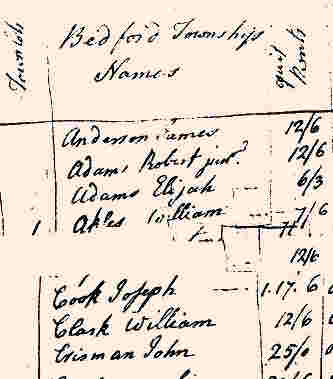 Township
Bedford Townships
Names
quit Rents
Anderson James 12/6
Adams Robert junr. 12/6
Adams Elijah 6/3
1 Akles William 7/6
12/6
Cook Joseph 1.17.6
Clark William 12/6
Crisman John 25/0